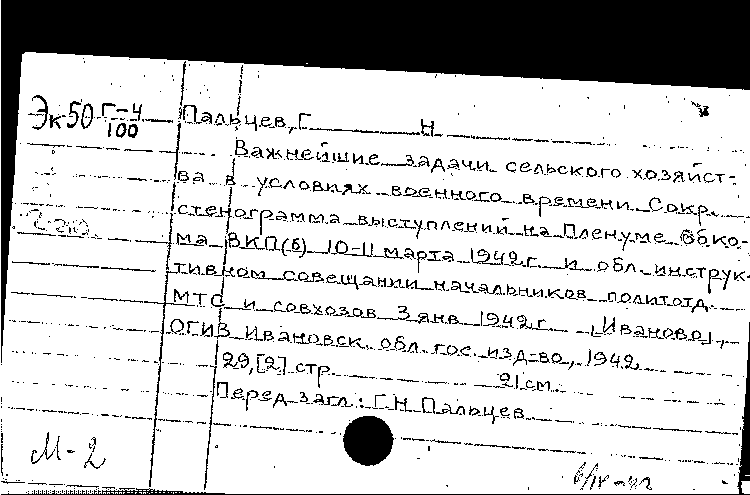 Эк50 Г-4/100
Пальцев, Г Н
Важнейшие задачи сельского хозяйст-
ва в условиях военного времени Сокр.
стенограмма выступлений на Пленуме Обко-
ма ВКП(б) 10-11 марта 1942 г. и обл. инструк-
тивном совещании начальников политотд.
МТС и совхозов 3 янв 1942 г. [Иваново],
ОГИЗ Ивановск. обл. гос. изд-во, 1942.
29,[2] стр. 21 см.
Перед загл.: Г.Н. Пальцев
М-2